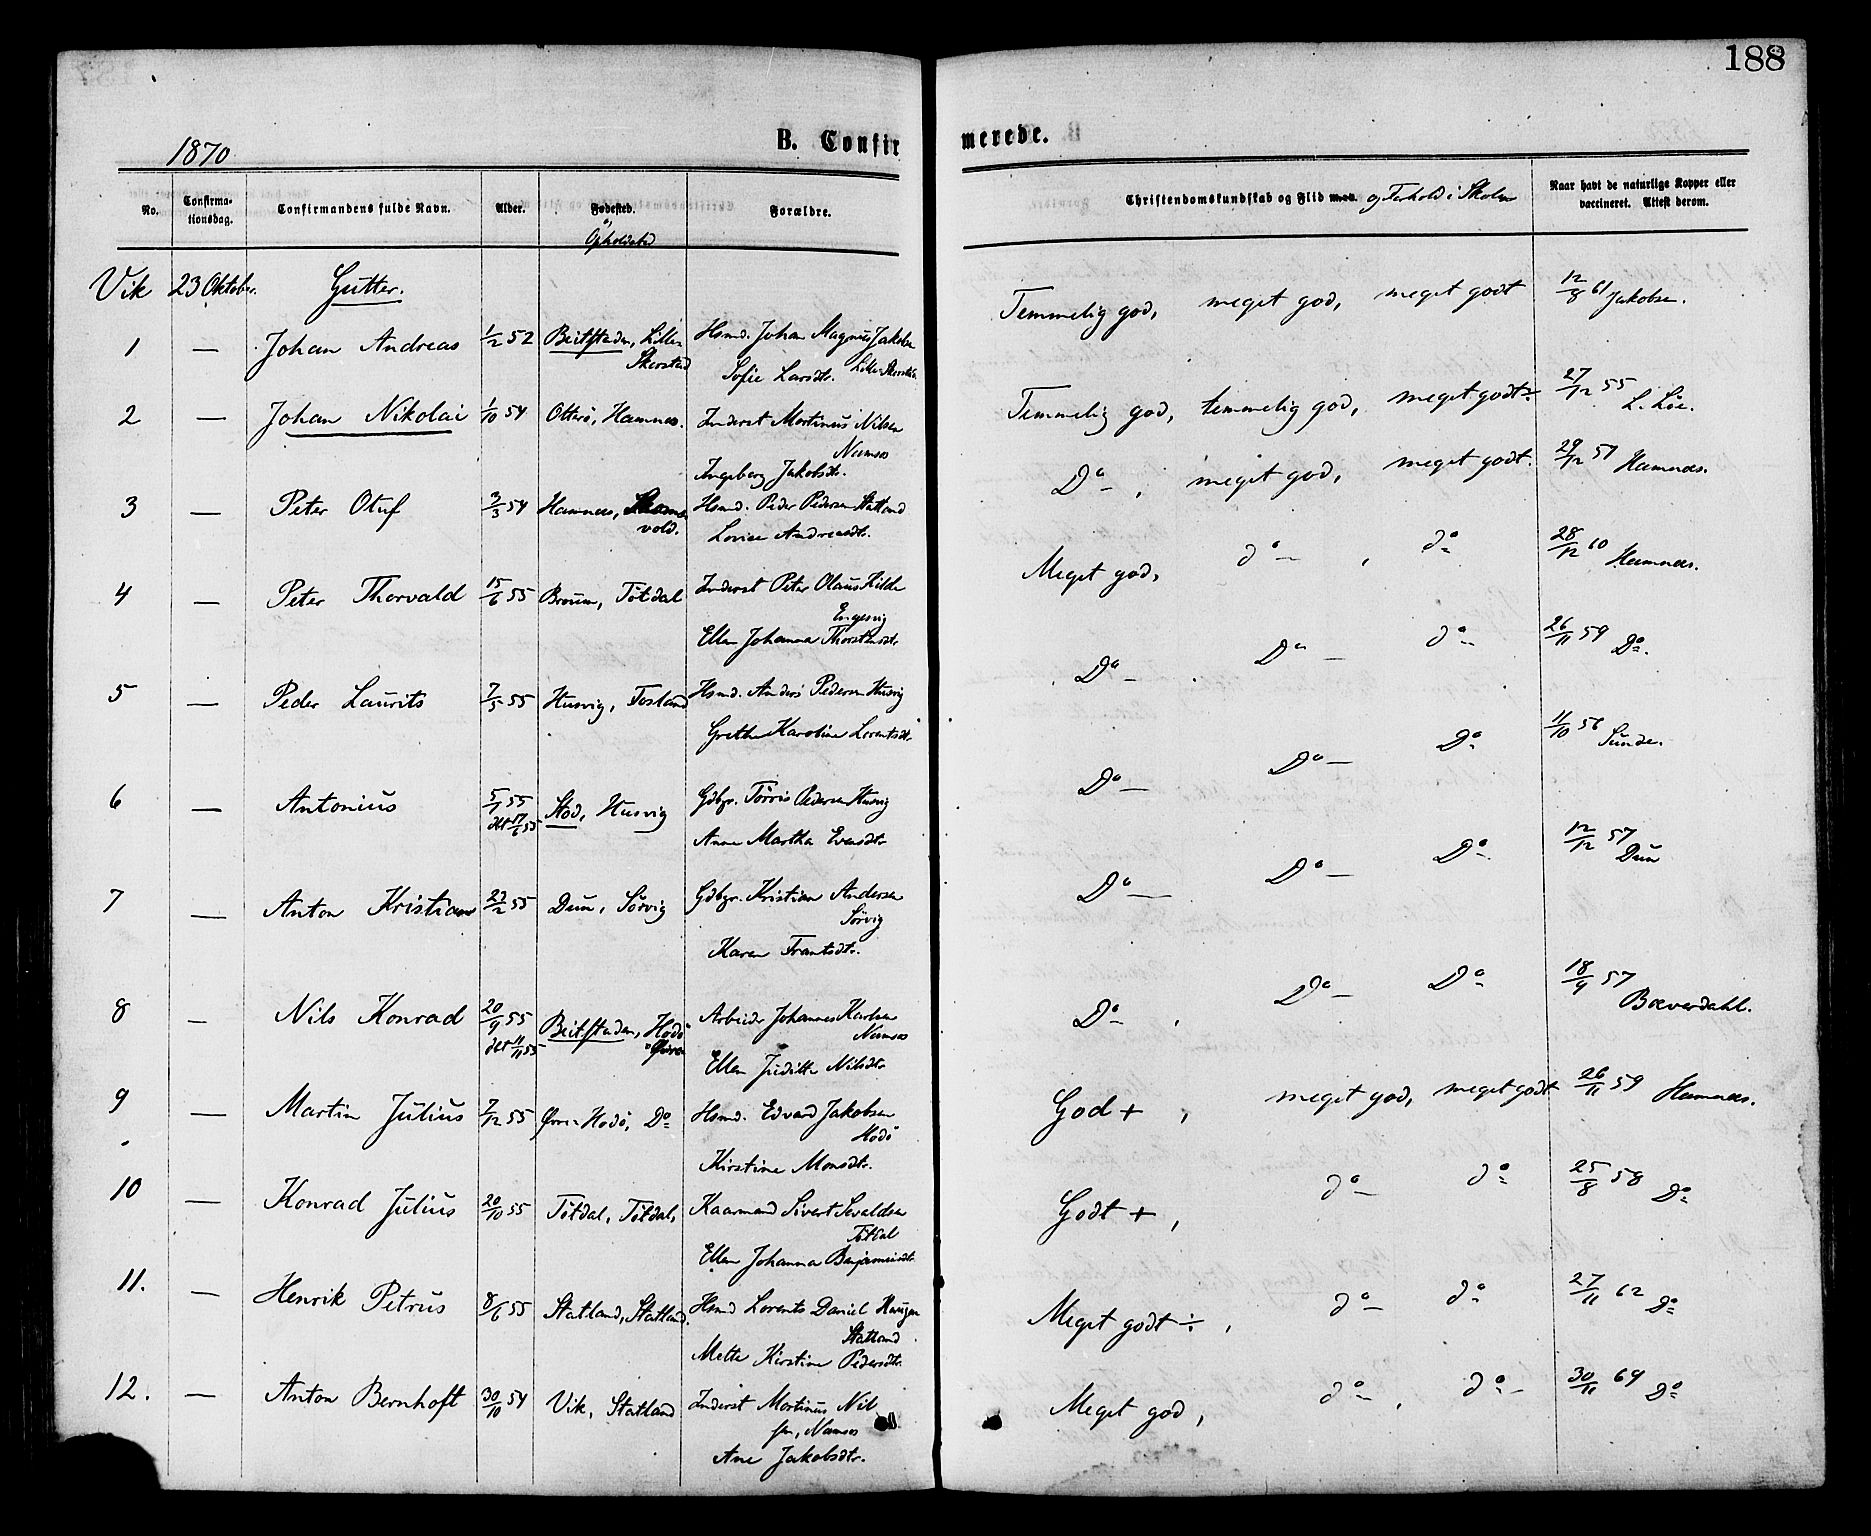 188
1870
B. Confirmerede.
No. Confirmationsdag. Confirmandens fulde Navn. Alder. Fødested. Forældre. Christendomskundskab og Flid m.m. og Forhold i Skolen Naar havt de naturlige Kopper eller vaccineret. Attest derom.
Opholdsted
Vik 23 Oktober. Gutter.
1 — Johan Andreas 1/2 52 Beitstaden, Lille Hsmd. Johan Magnus Jakobsen Temmelig god, meget god, meget godt 12/8 61 Jakobsen.
Skerstad Sofie Larsdtr. Lille Skerstad
2 — Johan Nikolai 1/10 54 Otterö, Hamnes. Inderst Martinus Nilsen Temmelig god, temmelig god, meget godt÷ 27/12 55 L. Löe.
Namsos
Ingeborg Jakobsdtr.
3 — Peter Oluf 3/3 54 Hamnes, Hsmd. Peder Pedersen Statland Do — , meget god, meget godt. 29/12 57 Hamnes.
vold. Lovise Andreasdtr.
4 — Peter Thorvald 15/6 55 Broum, Tötdal Inderst Peter Olaus Kilde Meget god, do — , do 28/12 60 Hamnes.
Engesvig
Ellen Johanna Thorstensdtr.
5 — Peder Laurits 7/5 55 Husvig, Fosland Hsmd. Anders Pedersen Husvig Do — Do — do — 26/11 59 Do.
Grethe Karoline Lorentsdtr.
6 — Antonius 5/7 55 Stod, Husvig Gdbgr. Törris Pedersen Husvig Do — Do — Do 11/10 56 Sunde.
dbt 17/6 55
Anne Martha Evensdtr.
7 — Anton Kristian 23/2 55 Dun, Sörvig Gdbgr. Kristian Andersen Do — Do — Do — 12/12 57 Dun
Sörvig
Karen Frantsdtr.
8 — Nils Konrad 20/9 55 Beitstaden, Hodö Arbeider Johannes Karlsen Do — , Do — Do 18/9 57 Bæverdahl.
dbt 11/11 55 Namsos
Ellen Judithe Nilsdtr.
9 — Martin Julius 7/12 55 Övre-Hodö, Do Hsmd. Edvard Jakobsen God + , meget god, meget godt 26/11 59 Hamnes.
Hodö
Kirstine Monsdtr.
10 — Konrad Julius 20/10 55 Tötdal, Tötdal, Kaarmand Sivert Sevaldsen Godt + , do — do 25/8 58 Do
Tötdal
Ellen Johanna Benjaminsdtr.
11. — Henrik Petrus 8/6 55 Statland, Statland. Hsmd Lorents Daniel Haugan Meget godt ÷ , do — do 27/11 62 Do
Statland
Mette Kirstine Pedersdtr.
12. — Anton Bernhoft 30/10 54 Vik, Statland Inderst Martinus Nil Meget god, do — , do — 30/11 64 Do
sen, Namsos
Ane Jakobsdtr.